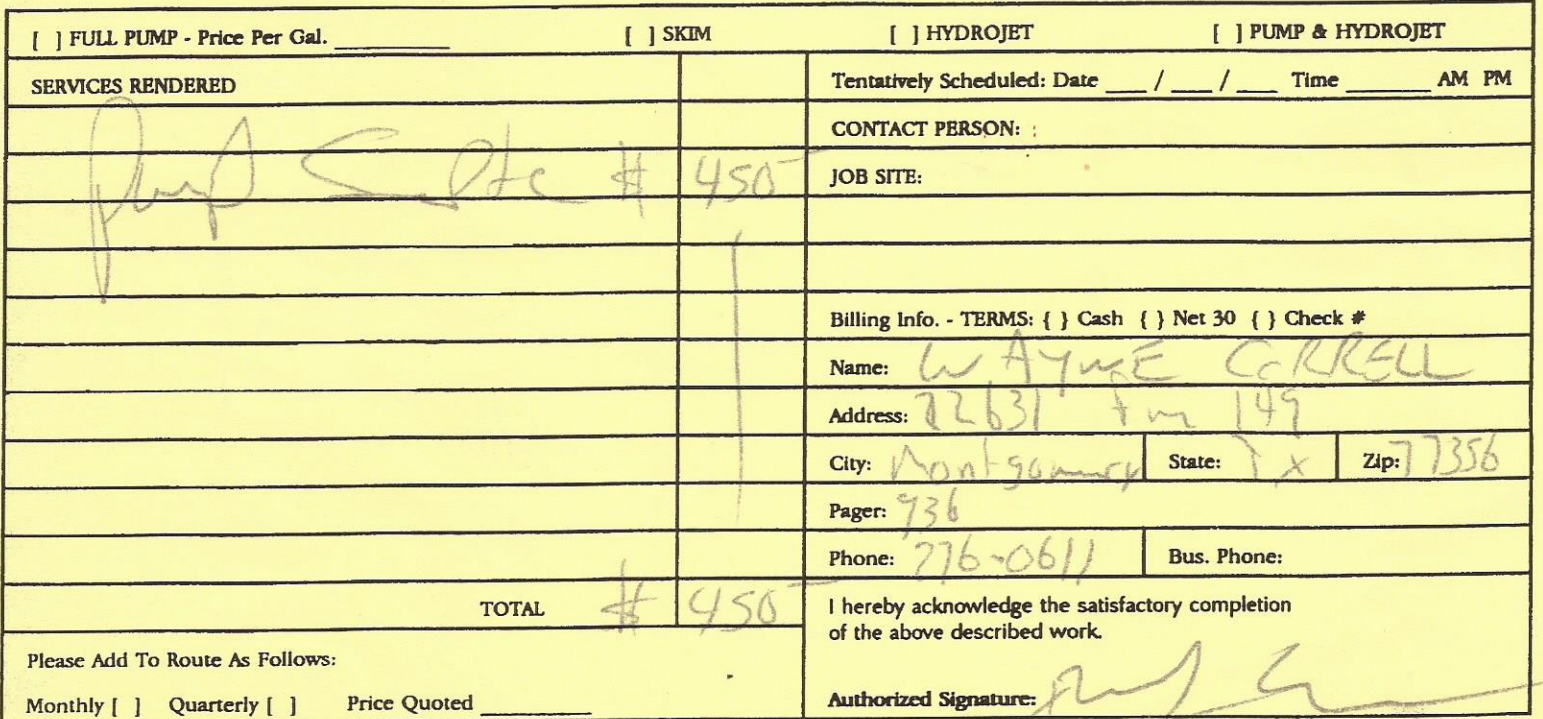 [ ] FULL PUMP - Price Per Gal. ________ [ ] SKIM [ ] HYDROJET [ ] PUMP & HYDROJET
SERVICES RENDERED
Pump Septc $ 450
TOTAL $ 450
Please Add To Route As Follows:
Monthly [ ] Quarterly [ ] Price Quoted ________
Tentatively Scheduled: Date ___ / ___ / ___ Time ______ AM PM
CONTACT PERSON: :
JOB SITE:
Billing Info. - TERMS: { } Cash { } Net 30 { } Check #
Name: WAYNE CORRELL
Address: 22631 Fm 149
City: Montgomery State: Tx Zip: 77356
Pager: 936
Phone: 776-0611 Bus. Phone:
I hereby acknowledge the satisfactory completion
of the above described work.
Authorized Signature: